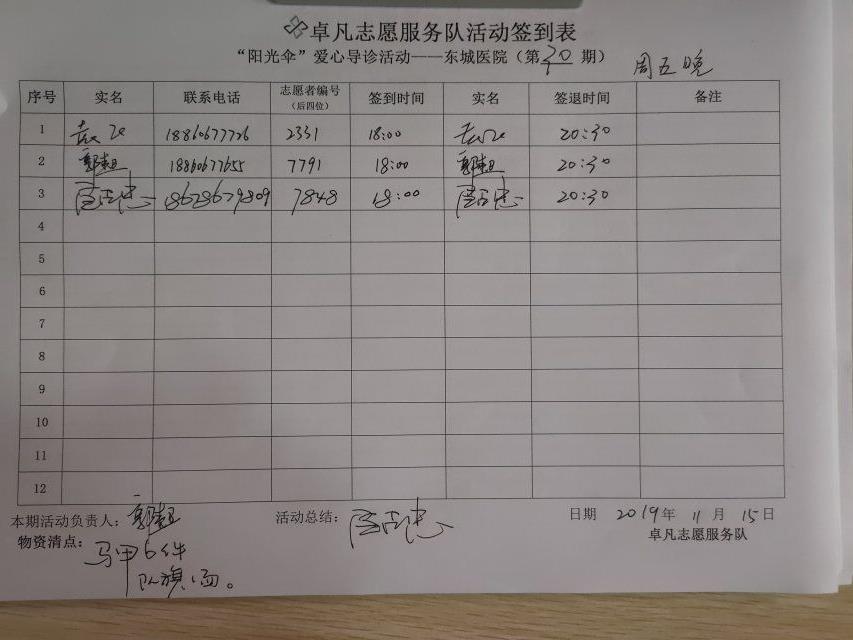 卓凡志愿服务队活动签到表
“阳光伞”爱心导诊活动——东城医院（第30期） 周五晚
序号 实名 联系电话 志愿者编号（后四位） 签到时间 实名 签退时间 备注
1 18860677726 2331 18:00 20:30
2 18860677655 7791 18:00 20:30
3 18628679809 7848 18:00 20:30
4
5
6
7
8
9
10
11
12
本期活动负责人： 活动总结： 日期 2019年 11月 15日
物资清点： 卓凡志愿服务队
马甲6件
队旗1面。